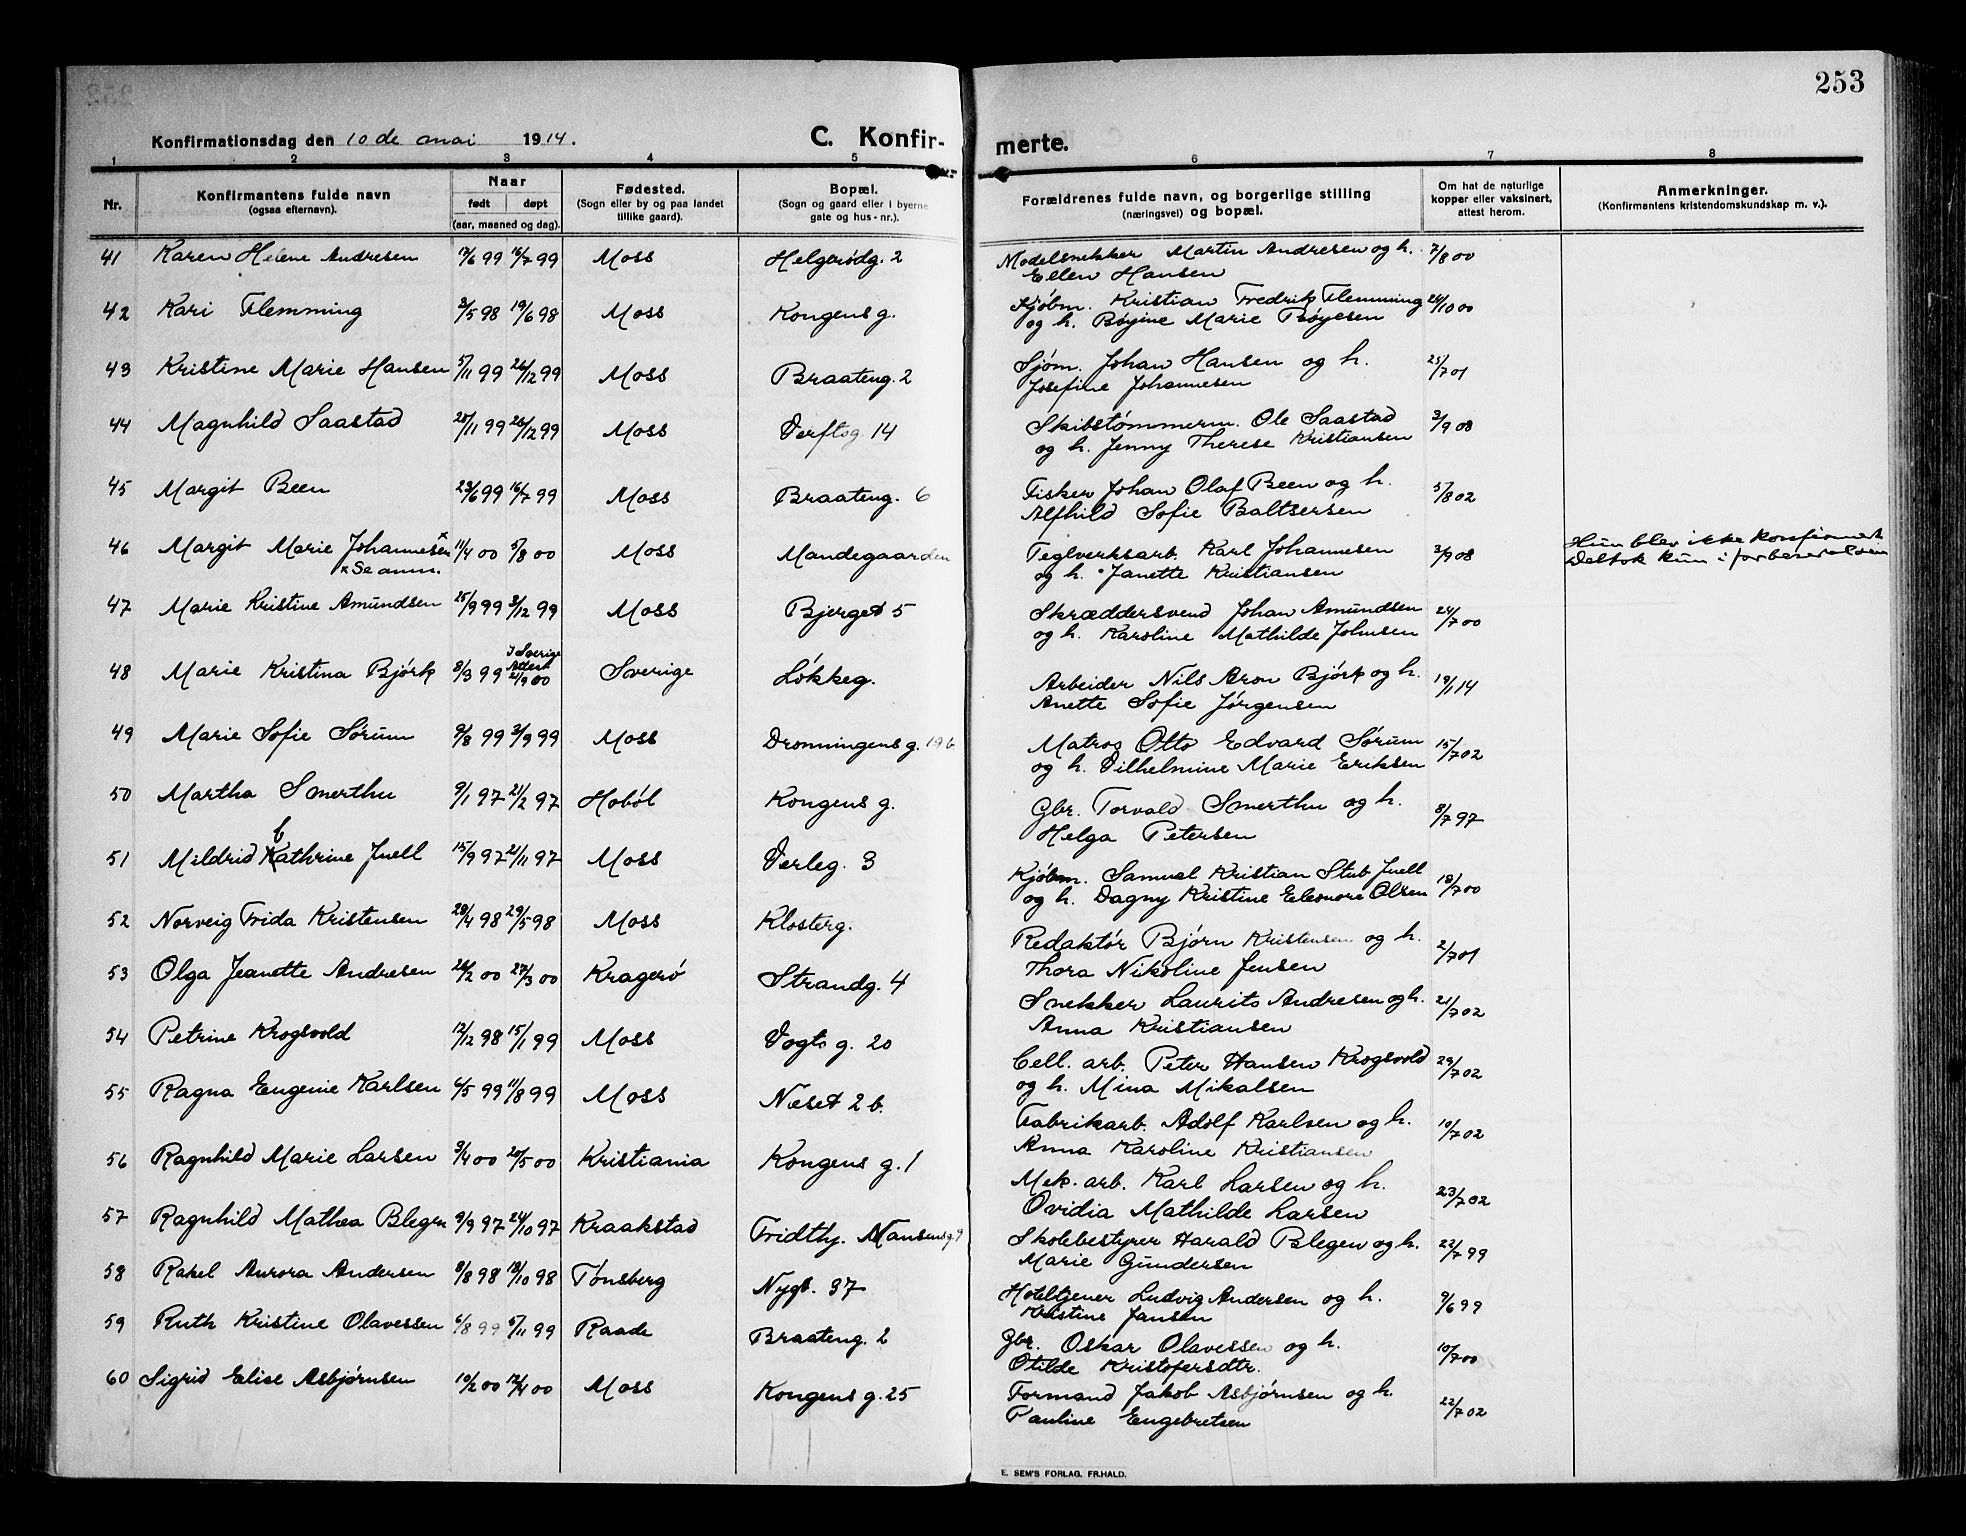 253
Konfirmationsdag den 10 de mai 1914.
C. Konfir-
merte.
1 2 3 4 5 6 7 8
Nr.
Konfirmantens fulde navn
(ogsaa efternavn).
Naar
født døpt
(aar, maaned og dag).
Fødested.
(Sogn eller by og paa landet
tillike gaard).
Bopæl.
(Sogn og gaard eller i byerne
gate og hus-nr.).
Forældrenes fulde navn, og borgerlige stilling
(næringsvei) og bopæl.
Om hat de naturlige
kopper eller vaksinert,
attest herom.
Anmerkninger.
(Konfirmantens kristendomskundskap m. v.).
41 Karen Helene Andresen 17/6 99 16/7 99 Moss Helgerødg. 2 Modelsnekker Martin Andresen og h. 7/8 00
Ellen Hansen
42 Kari Flemming 3/5 98 19/6 98 Moss Kongens g. Kjøbm. Kristian Fredrik Flemming 24/10 00
og h. Bøyine Marie Bøyesen
43 Kristine Marie Hansen 5/11 99 26/12 99 Moss Braateng. 2 Sjøm. Johan Hansen og h. 25/7 01
Josefine Johannesen
44 Magnhild Saastad 25/11 99 26/12 99 Moss Verftsg. 14 Skibstømmerm. Ole Saastad 3/9 08
og h. Jenny Therese Kristiansen
45 Margit Been 23/6 99 16/7 99 Moss Braateng. 6 Fisker Johan Olaf Been og h. 5/8 02
Alfhild Sofie Baltsersen
46 Margit Marie Johannesen x 11/4 00 5/8 00 Moss Mandegaarden Teglverksarb. Karl Johannesen 3/9 08 Hun blev ikke konfirmert
x Se anm. og h. Janette Kristiansen Deltok kun i forberedelsen
47 Marie Kristine Amundsen 25/9 99 3/12 99 Moss Bjerget 5 Skræddersvend Johan Amundsen 24/7 00
og h. Karoline Mathilde Johnsen
48 Marie Kristina Bjørk 8/3 99 I Sverige Attest 21/9 00 Sverige Løkkeg. Arbeider Nils Aron Bjørk og h. 19/1 14
Anette Sofie Jørgensen
49 Marie Sofie Sørum 9/8 99 3/9 99 Moss Dronningens g. 19 b Matros Otto Edvard Sørum 15/7 02
og h. Vilhelmine Marie Eriksen
50 Martha Smerthu 9/1 97 21/2 97 Hobøl Kongens g. Gbr. Torvald Smerthu og h. 8/7 97
Helga Petersen
51 Mildrid Kathrine Juell 15/9 97 21/11 97 Moss Verleg. 3 Kjøbm. Samuel Kristian Stub Juell 18/7 00
og h. Dagny Kristine Eleonore Olsen
52 Norveig Frida Kristensen 28/4 98 29/5 98 Moss Klosterg. Redaktør Bjørn Kristensen og h. 2/7 01
Thora Nikoline Jensen
53 Olga Jeanette Andresen 26/2 00 27/3 00 Kragerø Strandg. 4 Snekker Laurits Andresen og h. 21/7 02
Anna Kristiansen
54 Petrine Krogsvold 17/12 98 15/1 99 Moss Vogts g. 20 Cell. arb. Peter Hansen Krogsvold 29/7 02
og h. Mina Mikalsen
55 Ragna Eugenie Karlsen 6/5 99 11/8 99 Moss Næset 2 b. Fabrikarb. Adolf Karlsen og h. 10/7 02
Anna Karoline Kristiansen
56 Ragnhild Marie Larsen 3/4 00 20/5 00 Kristiania Kongens g. 1 Mek. arb. Karl Larsen og h. 23/7 02
Ovidia Mathilde Larsen
57 Ragnhild Mathea Blegen 9/9 97 24/10 97 Kraakstad Fridthj. Nansens g. 9 Skolebestyrer Harald Blegen og h. 22/7 99
Marie Gundersen
58 Rakel Aurora Andersen 9/8 98 13/10 98 Tønsberg Nygt. 37 Hoteltjener Ludvig Andersen og h. 9/6 99
Kristine Jansen
59 Ruth Kristine Olavessen 6/8 99 5/11 99 Raade Braateng. 2 Gbr. Oskar Olavessen og h. 10/7 00
Otilde Kristofersdtr.
60 Sigrid Elise Asbjørnsen 10/2 00 17/4 00 Moss Kongens g. 25 Formand Jakob Asbjørnsen og h. 22/7 02
Pauline Engebretsen
E. SEM'S FORLAG, FR.HALD.